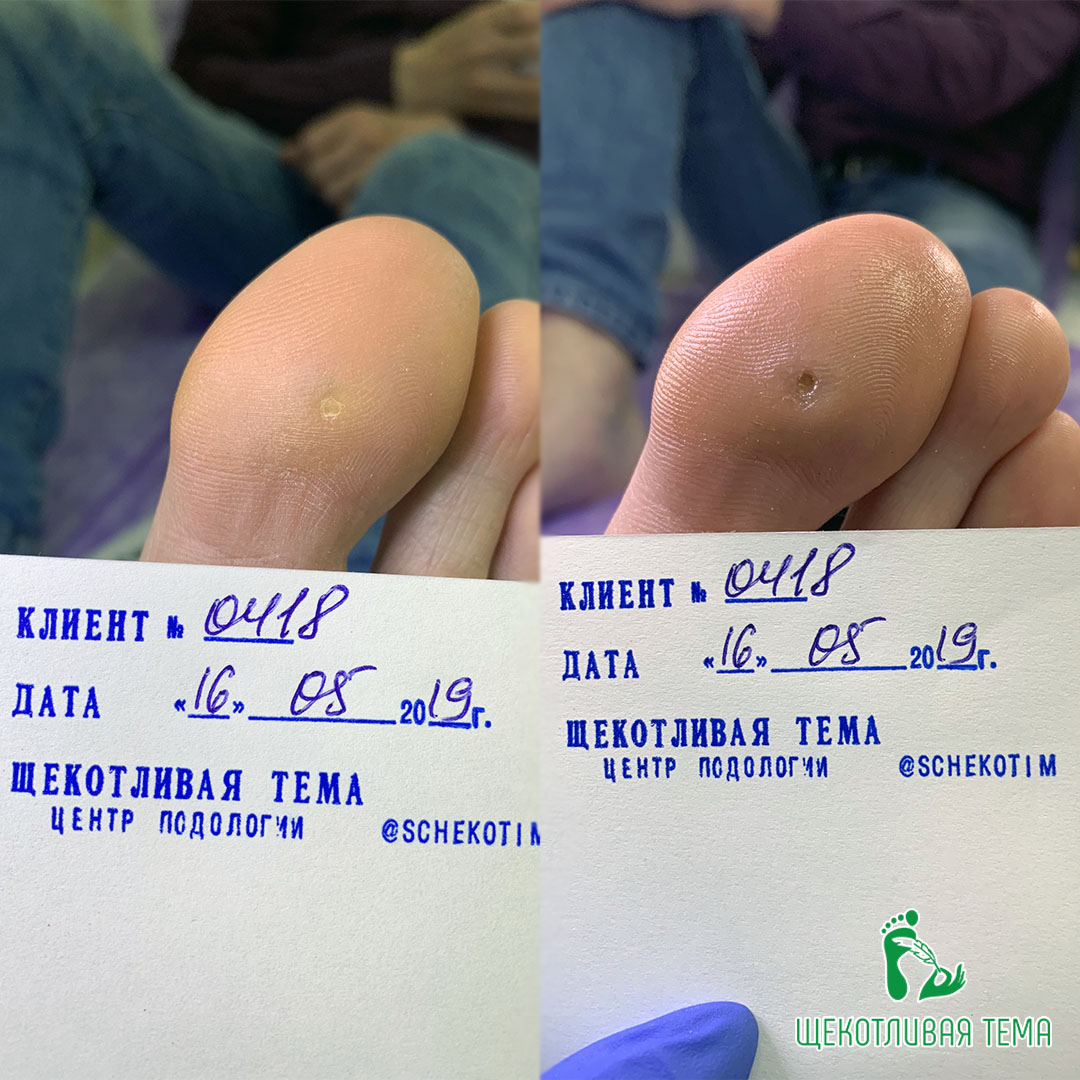 КЛИЕНТ № 0418
ДАТА «16» 05 2019г.
ЩЕКОТЛИВАЯ ТЕМА
ЦЕНТР ПОДОЛОГИИ @SCHEKOTIM
КЛИЕНТ № 0418
ДАТА «16» 05 2019г.
ЩЕКОТЛИВАЯ ТЕМА
ЦЕНТР ПОДОЛОГИИ @SCHEKOTIM
ЩЕКОТЛИВАЯ ТЕМА